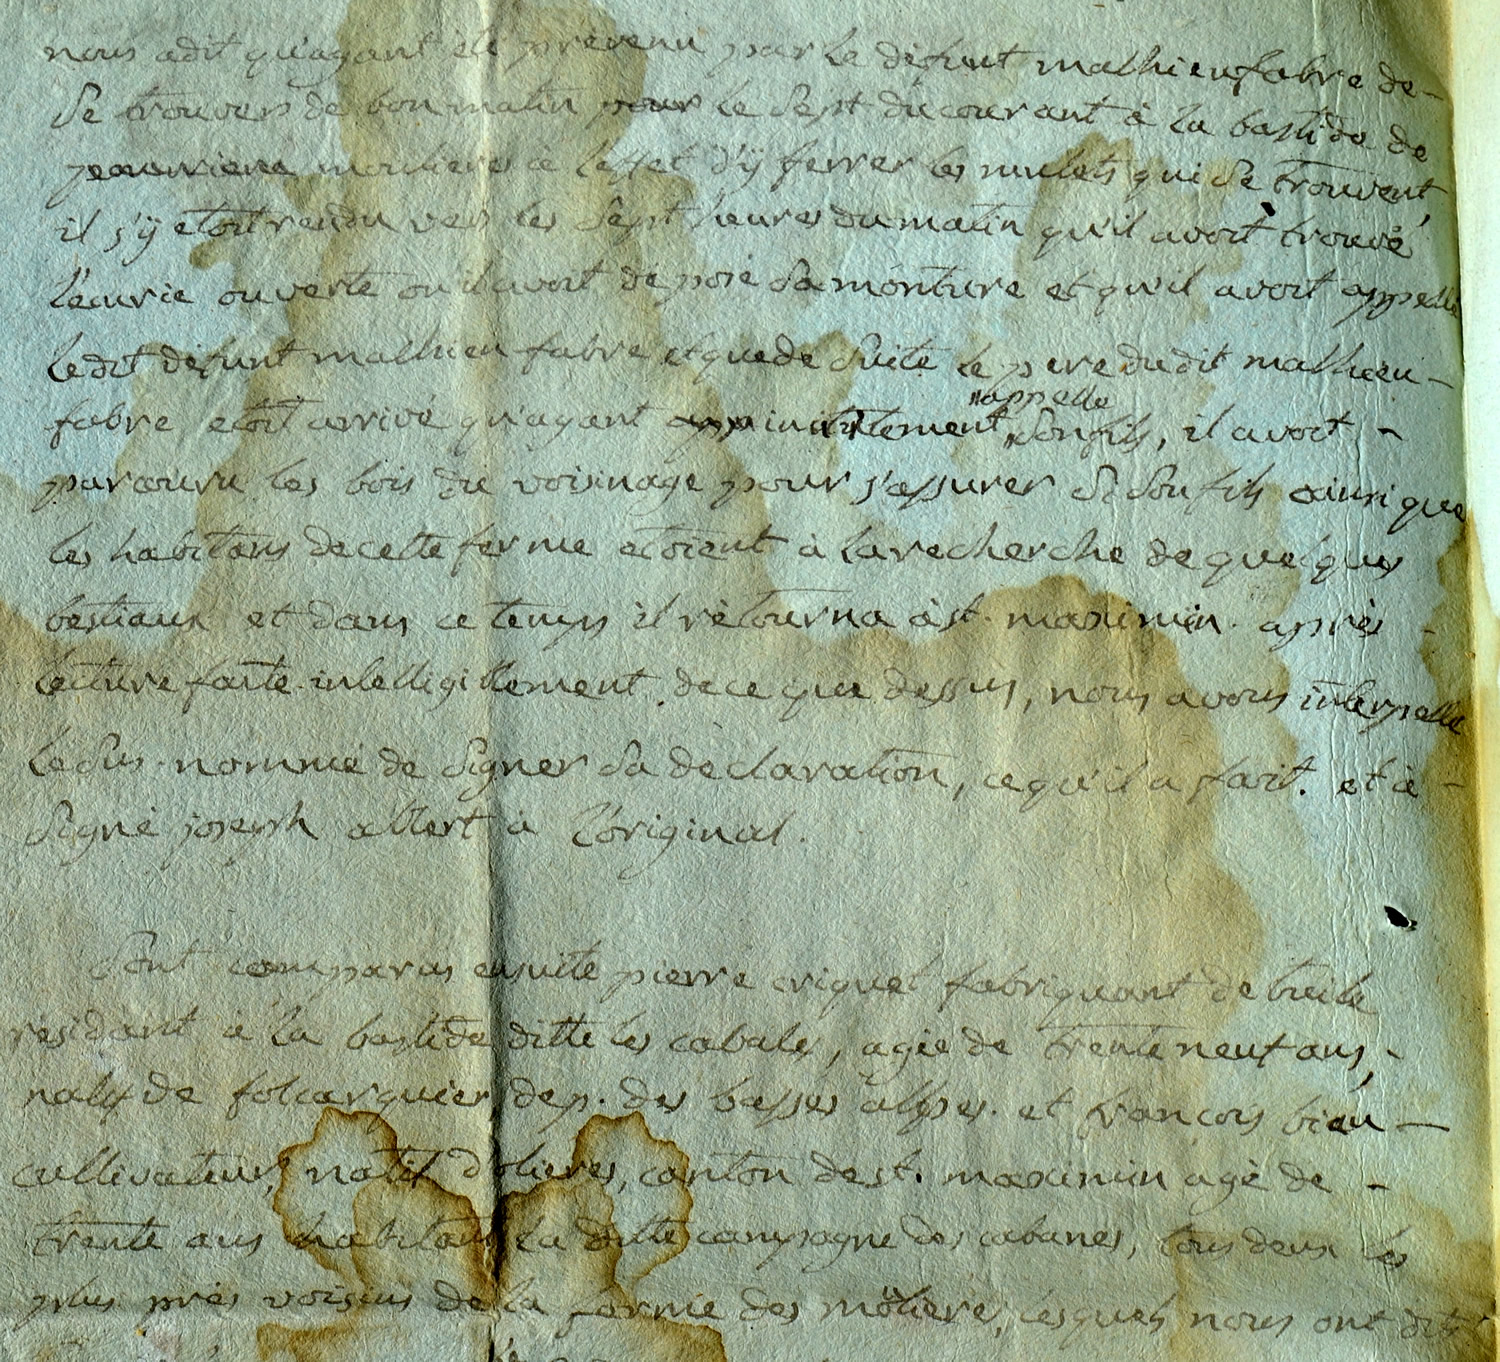 nous a dit qu'ayant été prévenu par le défunt mathieu fabre de-
se trouver de bon matin pour le sept du courant à la bastide de
mouliere a leffet d'ÿ ferrer les mulets qui se trouvent,
il s'ÿ etoit rendu vers les sept heures du matin qu'il avoit trouvé
l'écurie ouverte ou il avoit deposé sa monture et qu'il avoit appellé
ledit défunt mathieu fabre et que de suite le pere dudit mathieu-
fabre etoit arrivé qu'ayant inutilement appelle son fils, il avoit -
parcouru les bois du voisinage pour s'assurer si son fils ainsi que
les habitans de cette ferme etoient à la recherche de quelques
bestiaux et dans ce temps il rétourna à st. maximin. après -
lecture faite intelligiblement de ce que dessus, nous avons interpellé
le sus-nommé de signer sa déclaration, ce qu'il a fait. et à -
signé joseph albert à l'original.
Sont comparus ensuite pierre criquel fabriquant de tuile
résidant à la bastide ditte les cabales, agée de trente neuf ans, -
natif de folcarquier, dep. des basses alpses. et françois bieu -
cultivateur, natif d'olieres, canton de st. maximin agé de -
trente ans habitant la ditte campagne des cabanes, tous deux les
plus près voisins de la ferme des moliere, lesquels nous ont dits